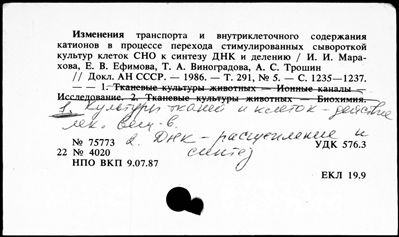 Изменения транспорта и внутриклеточного содержания
катионов в процессе перехода стимулированных сывороткой
культур клеток СНО к синтезу ДНК и делению / И. И. Мара-
хова, Е. В. Ефимова, Т. А. Виноградова, А. С. Трошин
// Докл. АН СССР. — 1986. — Т. 291, № 5. — С. 1235—1237.
— — 1. Тканевые культуры животных — Ионные каналы —
Исследование. 2. Тканевые культуры животных — Биохимия.
1. Культуры тканей и клеток - действие
лек. вещ-в.
2. ДНК - расщепление и
синтез
№ 75773
УДК 576.3
22 № 4020
НПО ВКП 9.07.87
ЕКЛ 19.9